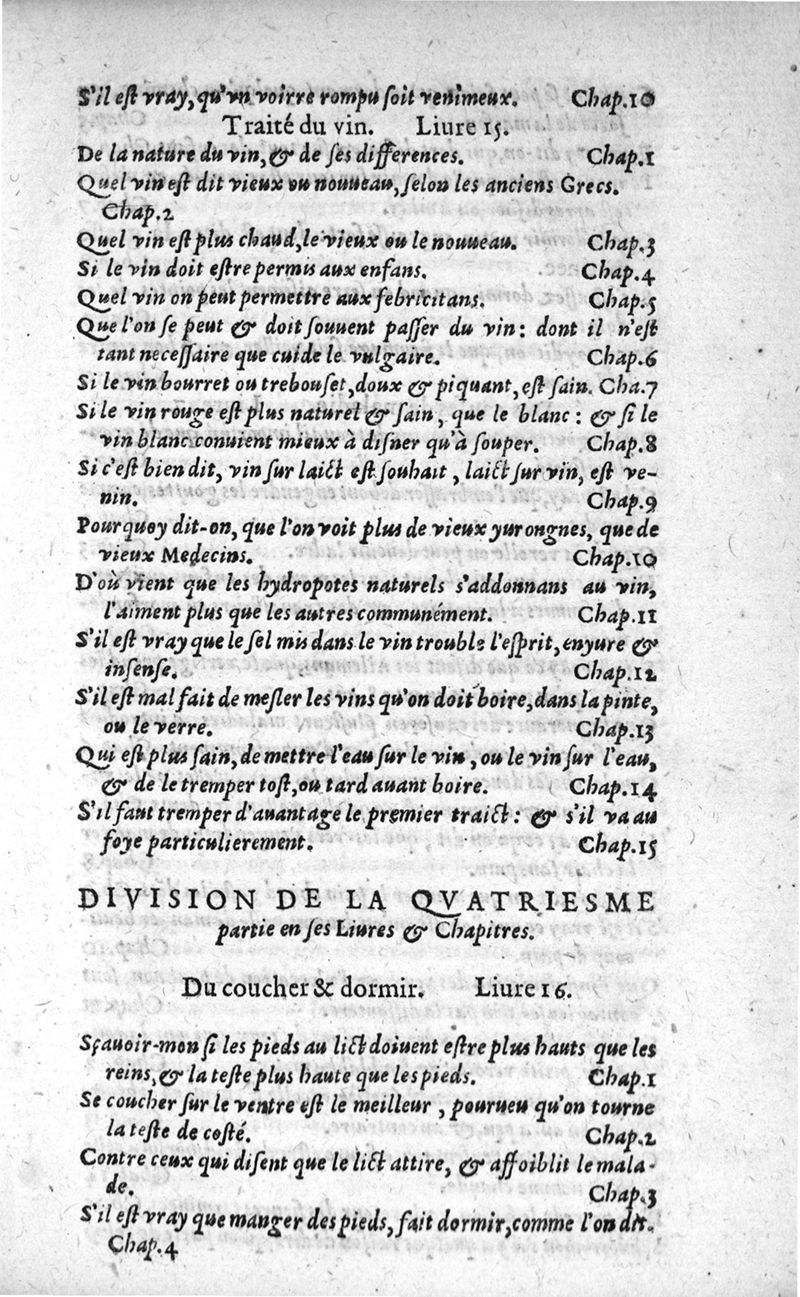 S'il eſt vray, qu'vn voirre rompu ſoit venimeux. Chap.10
Traité du vin. Liure 15.
De la nature du vin, & de ſes differences. Chap.1
Quel vin eſt dit vieux ou nouueau, ſelon les anciens Grecs.
Chap.2
Quel vin eſt plus chaud, le vieux ou le nouueau. Chap.3
Si le vin doit eſtre permis aux enfans. Chap.4
Quel vin on peut permettre aux febricitans. Chap.5
Que l'on ſe peut & doit ſouuent paſſer du vin: dont il n'eſt
tant neceſſaire que cuide le vulgaire. Chap.6
Si le vin bourret ou trebouſet, doux & piquant, eſt ſain. Cha.7
Si le vin rouge eſt plus naturel & ſain, que le blanc: & ſi le
vin blanc conuient mieux à diſner qu'à ſouper. Chap.8
Si c'eſt bien dit, vin ſur laict eſt ſouhait, laict ſur vin, eſt ve-
nin. Chap.9
Pourquoy dit-on, que l'on voit plus de vieux yurongnes, que de
vieux Medecins. Chap.10
D'où vient que les hydropotes naturels s'addonnans au vin,
l'aiment plus que les autres communément. Chap.11
S'il eſt vray que le ſel mis dans le vin trouble l'eſprit, enyure &
inſenſe. Chap.12
S'il eſt mal fait de meſler les vins qu'on doit boire, dans la pinte,
ou le verre. Chap.13
Qui eſt plus ſain, de mettre l'eau ſur le vin, ou le vin ſur l'eau,
& de le tremper toſt, ou tard auant boire. Chap.14
S'il faut tremper d'auantage le premier traict: & s'il va au
foye particulierement. Chap.15
DIVISION DE LA QVATRIESME
partie en ſes Liures & Chapitres.
Du coucher & dormir. Liure 16.
Sçauoir-mon ſi les pieds au lict doiuent eſtre plus hauts que les
reins, & la teſte plus haute que les pieds. Chap.1
Se coucher ſur le ventre eſt le meilleur, pourueu qu'on tourne
la teſte de coſté. Chap.2
Contre ceux qui diſent que le lict attire, & affoiblit le mala-
de. Chap.3
S'il eſt vray que manger des pieds, fait dormir, comme l'on dit.
Chap.4